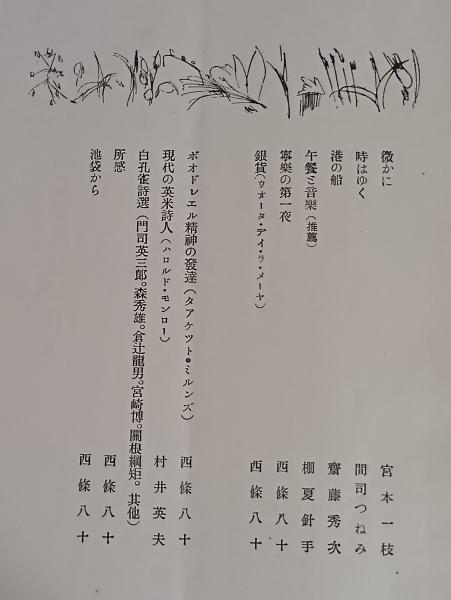 微かに 宮本一枝
時はゆく 間司つねみ
港の船 齋藤秀次
午餐ミ音樂(推薦) 棚夏針手
寧樂の第一夜 西條八十
銀貨(ウオータ・デイ・ラ・メーヤ) 西條八十
ボオドレエル精神の發達(タアケツト・ミルンズ) 西條八十
現代の英米詩人(ハロルド・モンロー) 村井英夫
白孔雀詩選(門司英三郎。森秀雄。倉辻龍男。宮崎博。關根綱矩。其他)
所感 西條八十
池袋から 西條八十